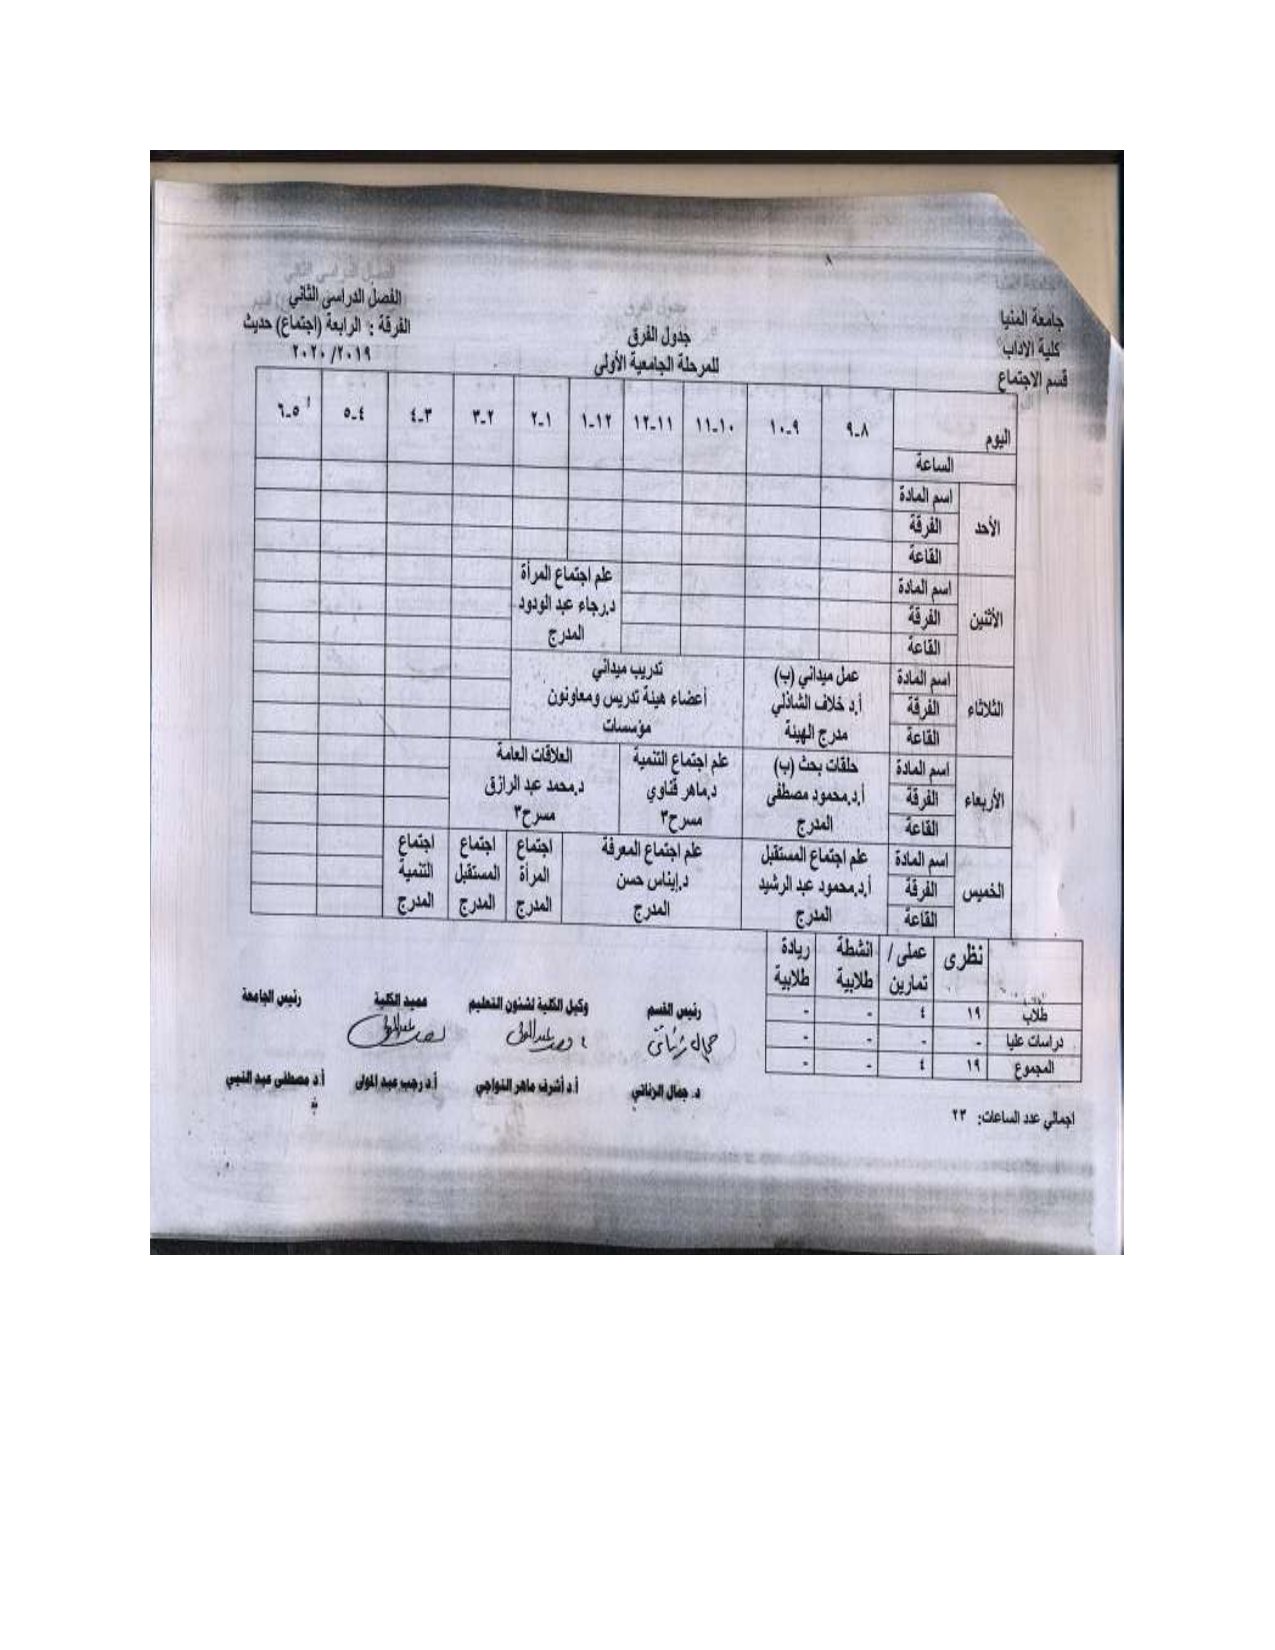 جامعة المنيا
كلية الاداب
قسم الاجتماع
جدول الفرق
للمرحلة الجامعية الأولى
الفصل الدراسى الثاني
الفرقة : الرابعة (اجتماع) حديث
٢٠١٩/ ٢٠٢٠
اليوم
الساعة
٨-٩ ٩-١٠ ١٠-١١ ١١-١٢ ١٢-١ ١-٢ ٢-٣ ٣-٤ ٤-٥ ٥-٦
الأحد
اسم المادة
الفرقة
القاعة
الأثنين
اسم المادة
الفرقة
القاعة
علم اجتماع المرأة
د.رجاء عبد الودود
المدرج
الثلاثاء
اسم المادة
الفرقة
القاعة
عمل ميداني (ب)
أ.د خلاف الشاذلي
مدرج الهيئة
تدريب ميداني
أعضاء هيئة تدريس ومعاونون
مؤسسات
الأربعاء
اسم المادة
الفرقة
القاعة
حلقات بحث (ب)
أ.د.محمود مصطفى
المدرج
علم اجتماع التنمية
د.ماهر قناوي
مسرح٣
العلاقات العامة
د.محمد عبد الرازق
مسرح٣
الخميس
اسم المادة
الفرقة
القاعة
علم اجتماع المستقبل
أ.د.محمود عبد الرشيد
المدرج
علم اجتماع المعرفة
د.إيناس حسن
المدرج
اجتماع
المرأة
المدرج
اجتماع
المستقبل
المدرج
اجتماع
التنمية
المدرج
نظرى
عملى /
تمارين
انشطة
طلابية
ريادة
طلابية
طلاب ١٩ ٤ - -
دراسات عليا - - - -
المجموع ١٩ ٤ - -
اجمالي عدد الساعات: ٢٣
رئيس القسم
وكيل الكلية لشئون التعليم
عميد الكلية
رئيس الجامعة
د. جمال الزناتي
أ.د أشرف ماهر النواجي
أ.د رجب عبد المولى
أ.د مصطفى عبد النبي